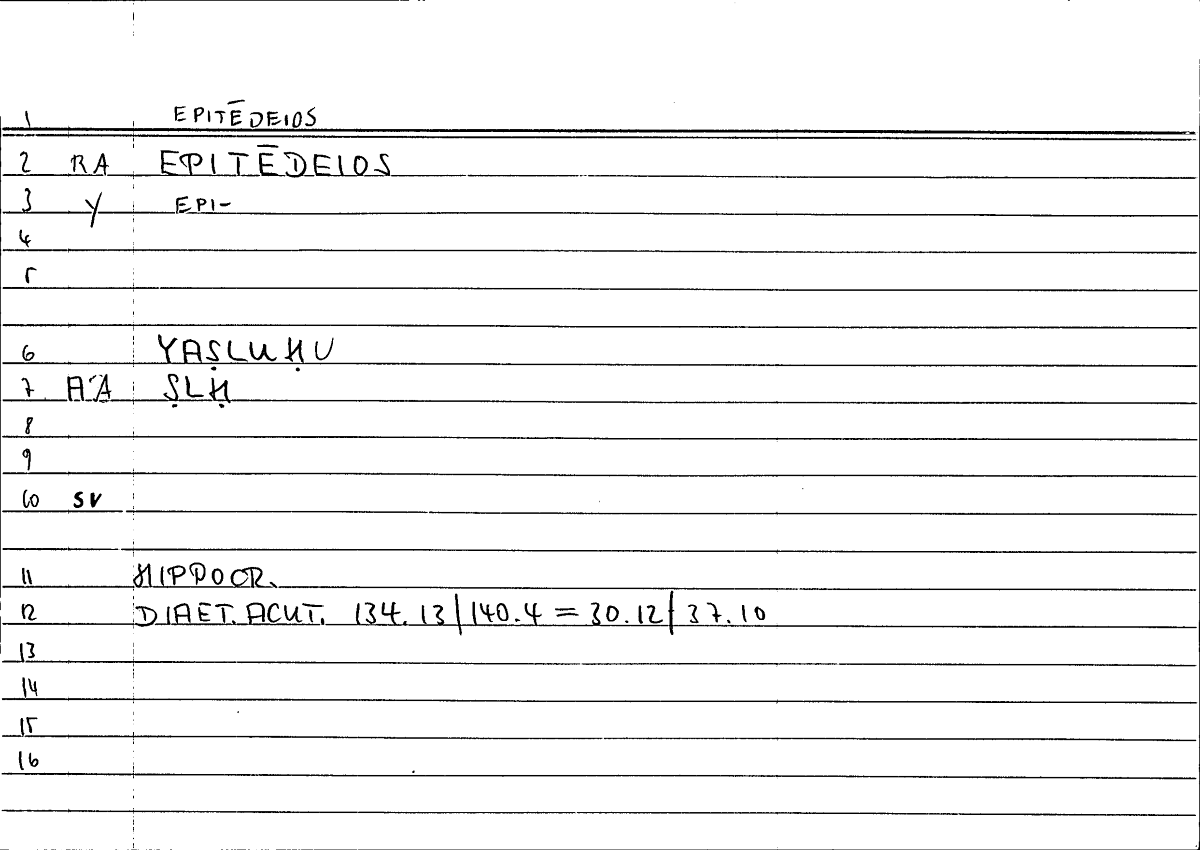 1 EPITĒDEIOS
2 RA EPITĒDEIOS
3 Y EPI-
4
5
6 YAṢLUḤU
7 A'A ṢLḤ
8
9
10 SV
11 HIPPOCR.
12 DIAET. ACUT. 134.13|140.4 = 30.12|37.10
13
14
15
16